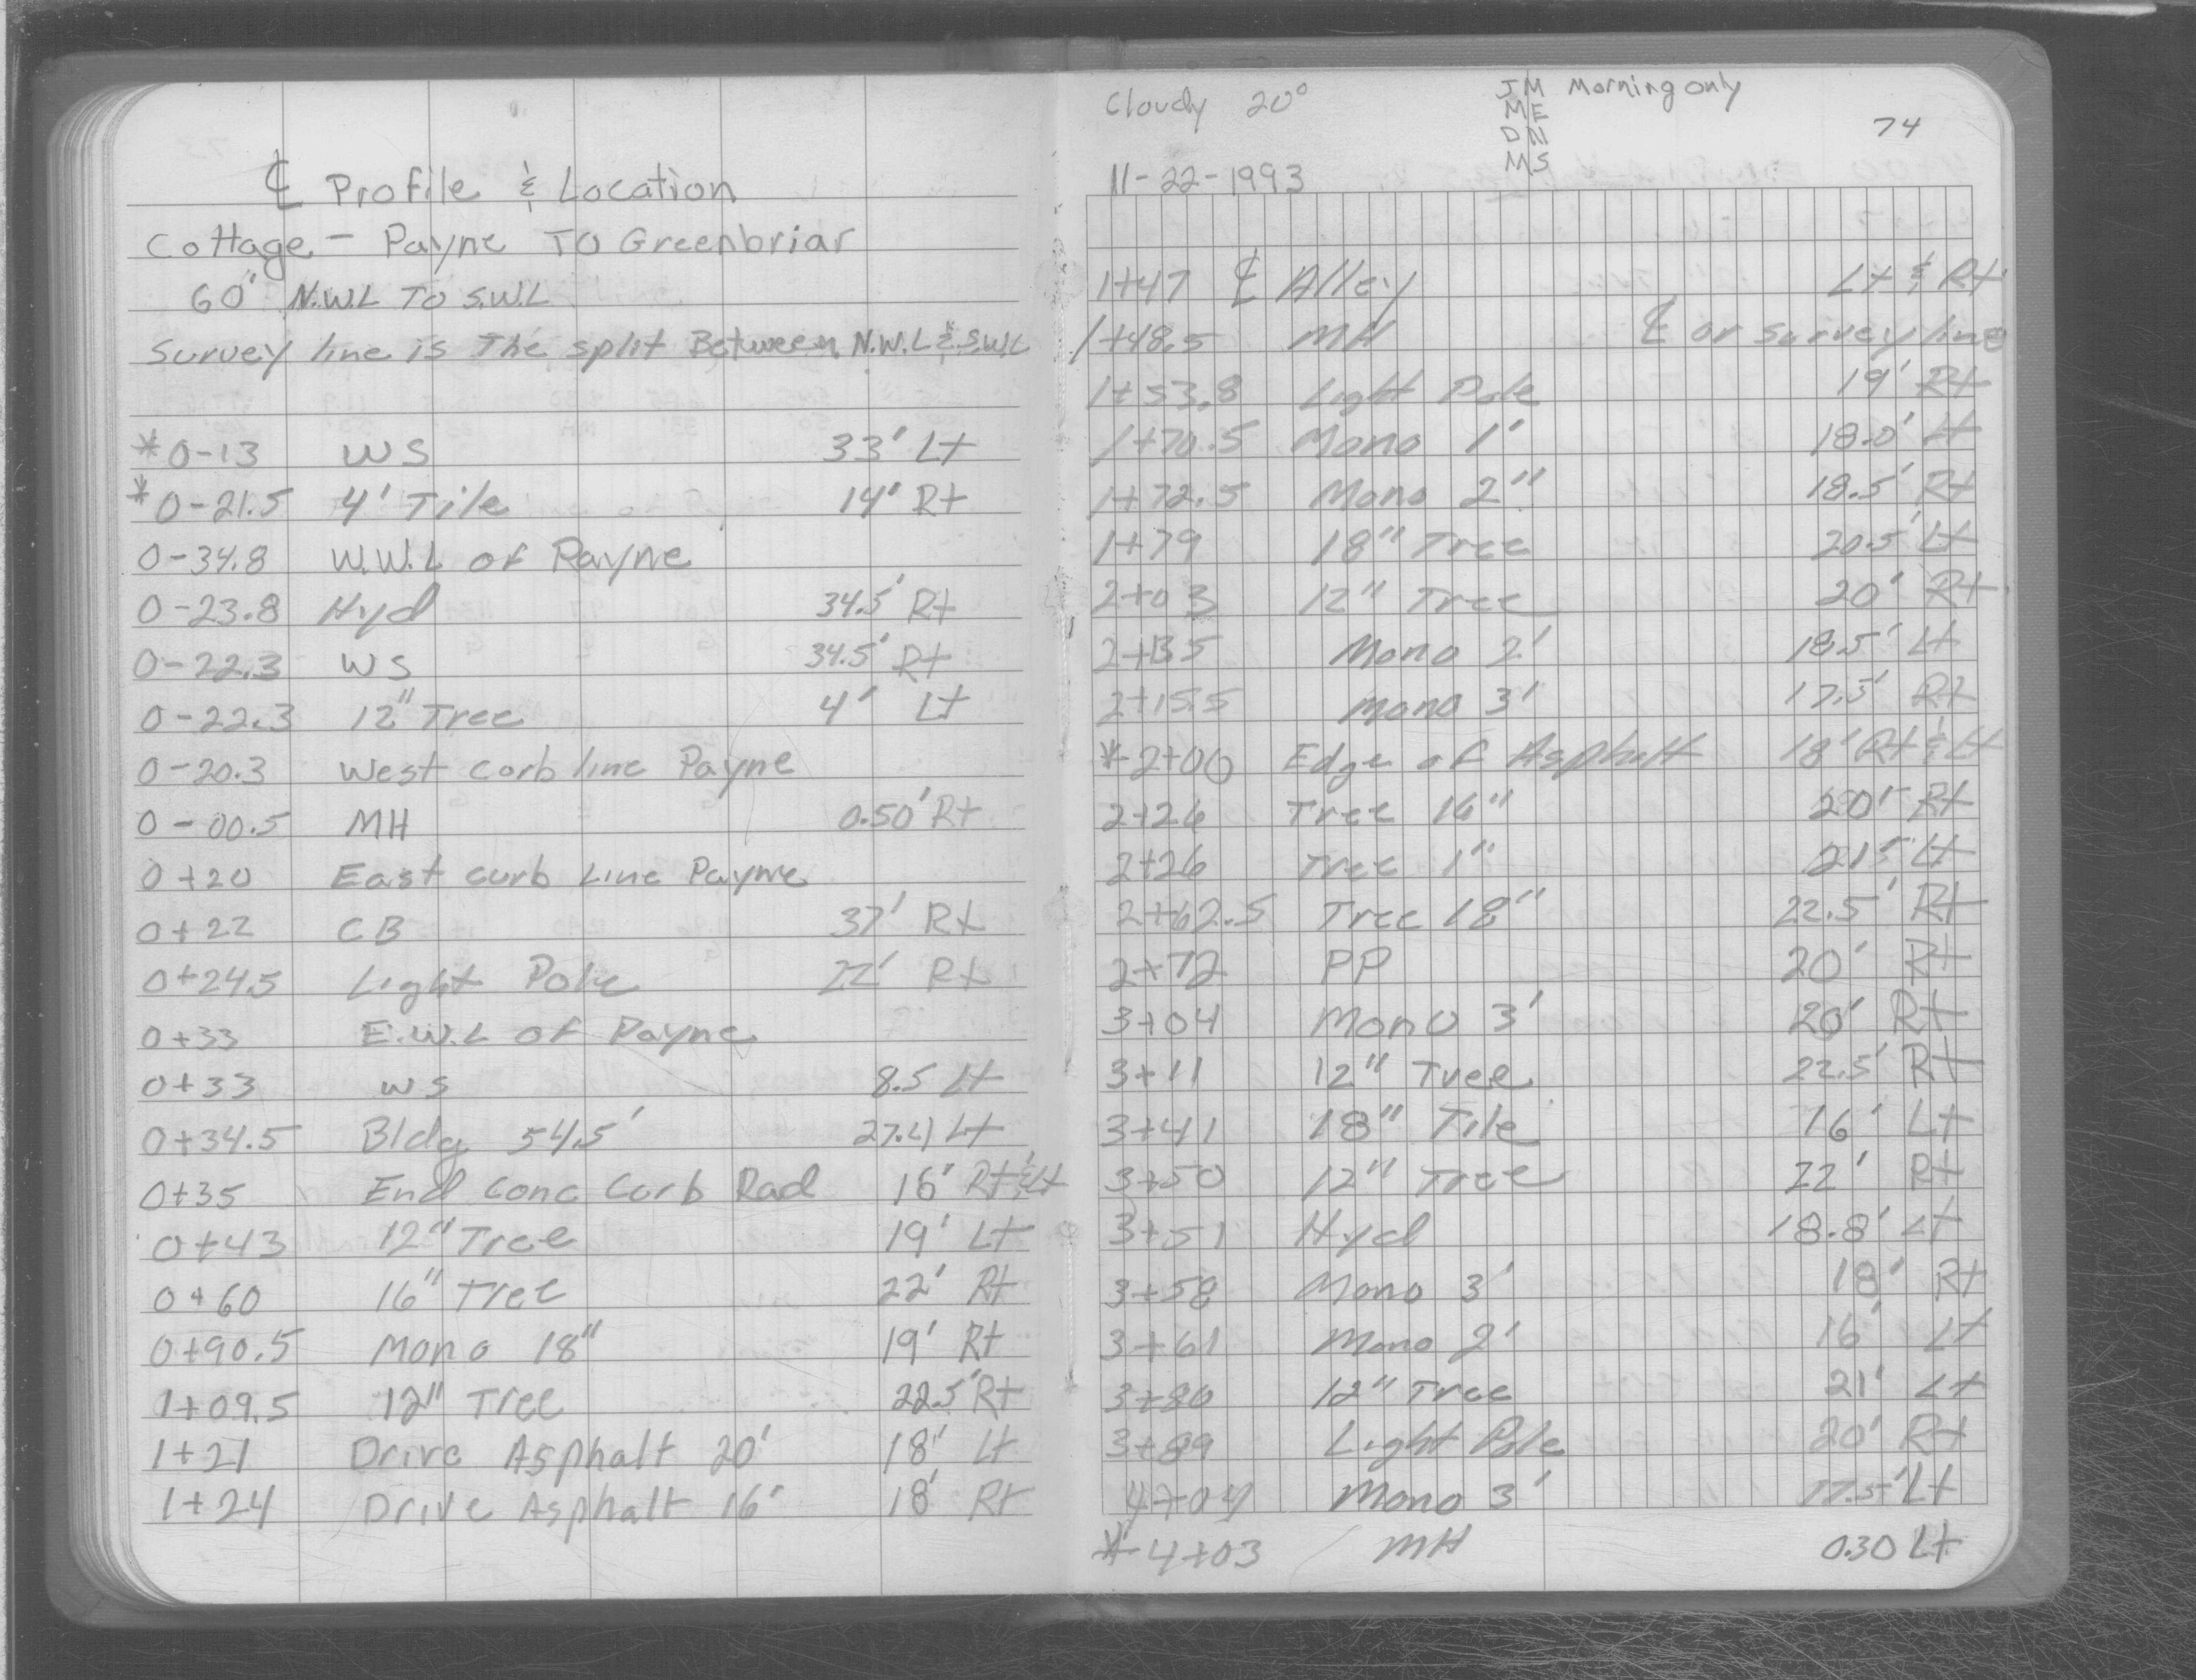 ℄ Profile & Location
Cottage - Payne TO Greenbriar
60' N.W.L TO S.W.L
Survey line is The split Between N.W.L & S.W.L
*0-13 WS 33' Lt
*0-21.5 4' Tile 14' Rt
0-34.8 W.W.L of Payne
0-23.8 Hyd 34.5' Rt
0-22.3 WS 34.5' Rt
0-22.3 12" Tree 4' Lt
0-20.3 West curb line Payne
0-00.5 MH 0.50' Rt
0+20 East curb Line Payne
0+22 CB 37' Rt
0+24.5 Light Pole 22' Rt
0+33 E.W.L of Payne
0+33 WS 8.5 Lt
0+34.5 Bldg 54.5' 27.4 Lt
0+35 End Conc Curb Rad 16' Rt & Lt
0+43 12" Tree 19' Lt
0+60 16" Tree 22' Rt
0+90.5 Mono 18" 19' Rt
1+09.5 12" Tree 22.5' Rt
1+21 Drive Asphalt 20' 18' Lt
1+24 Drive Asphalt 16' 18' Rt
Cloudy 20° JM Morning only
ME
DN
74
MS
11-22-1993
1+47 ℄ Alley Lt & Rt
1+48.5 MH ℄ or survey line
1+53.8 Light Pole 19' Rt
1+70.5 Mono 1' 18.0' Lt
1+72.5 Mono 2" 18.5' Rt
1+79 18" Tree 20.5' Lt
2+03 12" Tree 20' Rt
2+13.5 Mono 2' 18.5' Lt
2+15.5 Mono 3' 17.5' Rt
*2+00 Edge of Asphalt 18' Rt & Lt
2+26 Tree 16" 20' Rt
2+26 Tree 1" 21.5' Lt
2+62.5 Tree 18" 22.5' Rt
2+72 PP 20' Rt
3+04 Mono 3' 20' Rt
3+11 12" Tree 22.5' Rt
3+41 18" Tile 16' Lt
3+50 12" Tree 22' Rt
3+51 Hyd 18.8' Lt
3+58 Mono 3' 18' Rt
3+61 Mono 2' 16' Lt
3+80 12" Tree 21' Lt
3+89 Light Pole 20' Rt
4+04 Mono 3' 17.5' Lt
*4+03 MH 0.30 Lt